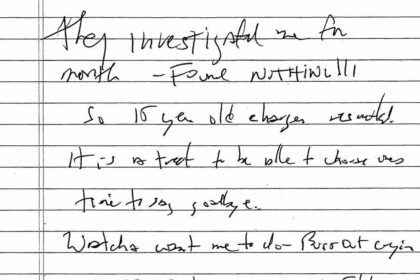 They investigated me for
month - Found NOTHING!!!
So 16 year old charges resulted.
It is a treat to be able to choose ones
time to say goodbye.
Watcha want me to do - Burst out cryin